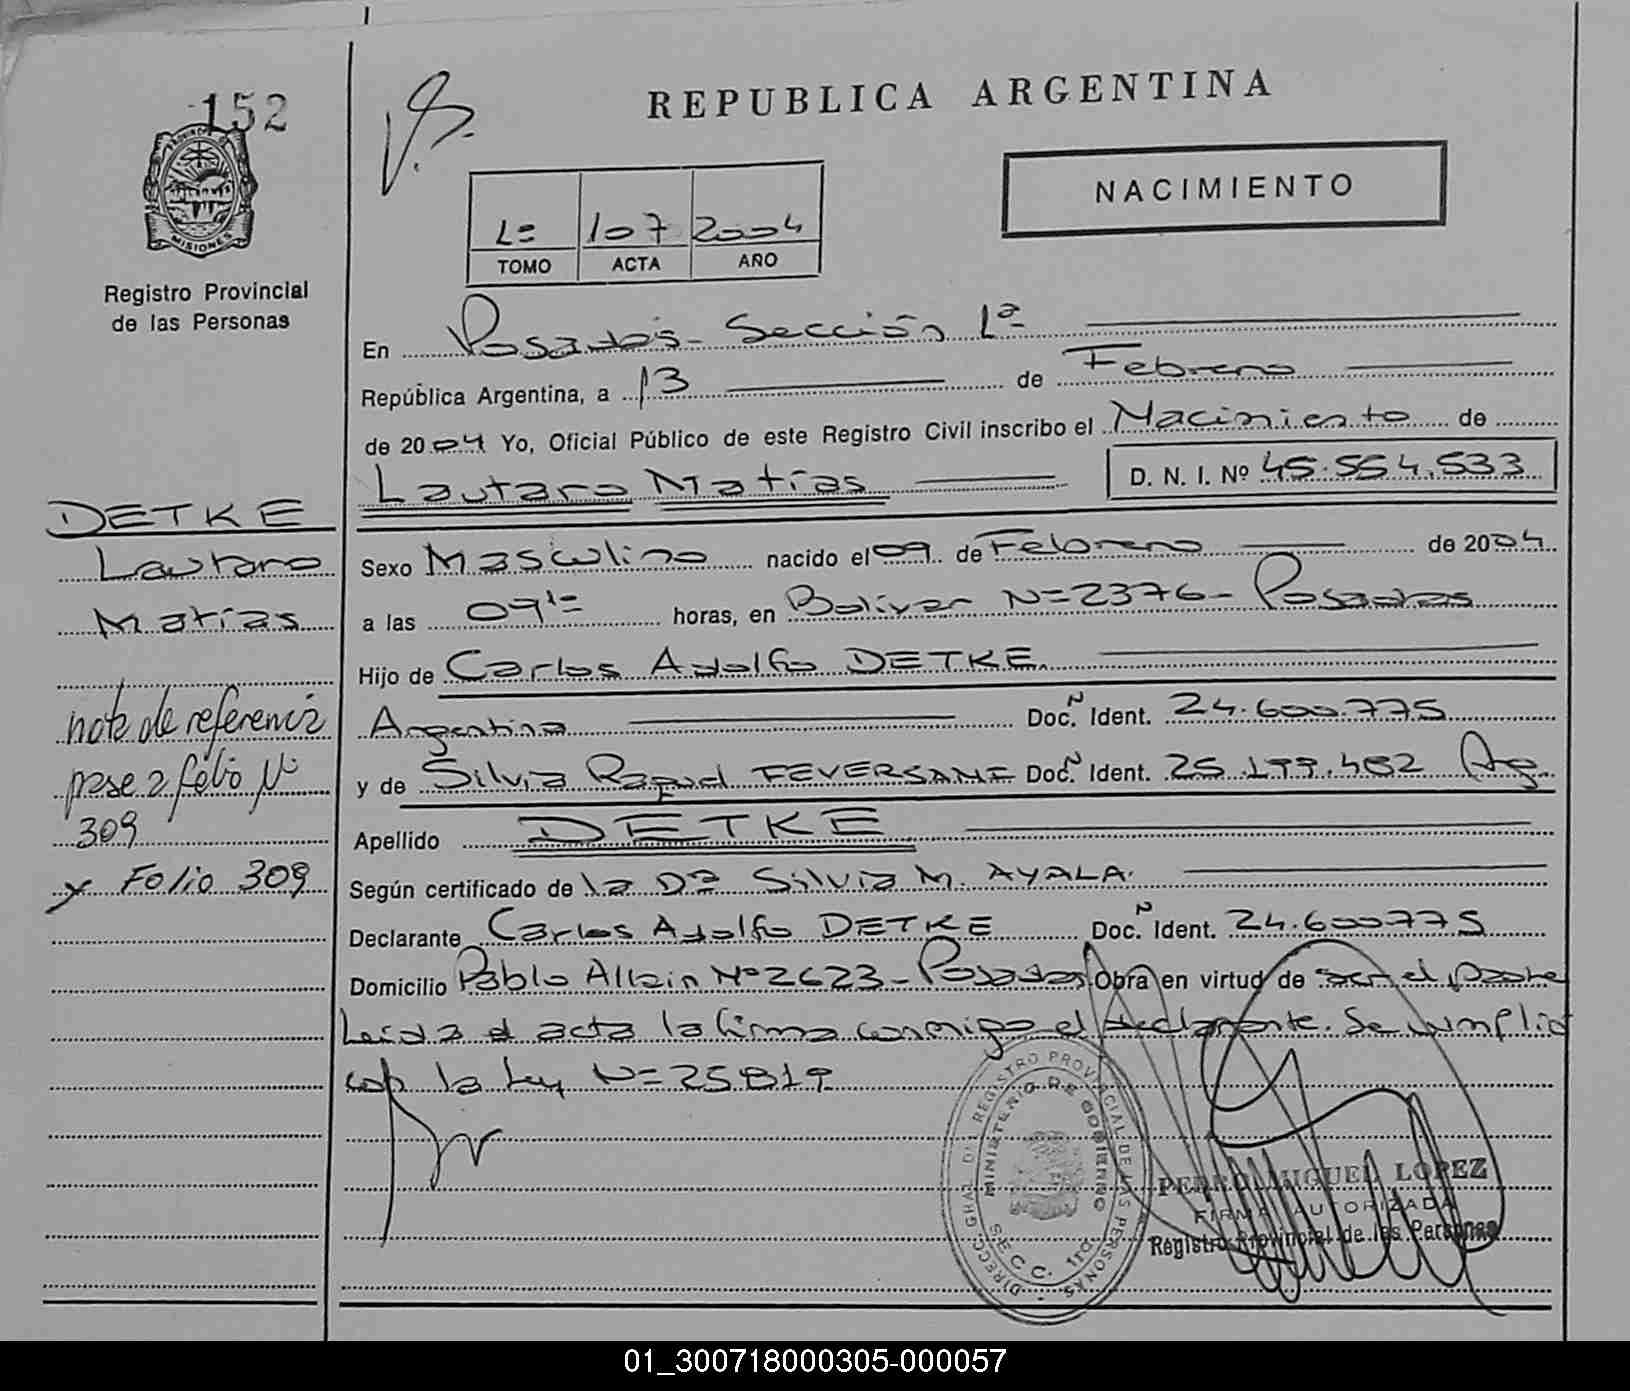 152
PROVINCIA DE
MISIONES
Registro Provincial
de las Personas
REPUBLICA ARGENTINA
NACIMIENTO
1º 107 2004
TOMO ACTA AÑO
En Posadas - Sección 1ª
República Argentina, a 13 de Febrero
de 2004 Yo, Oficial Público de este Registro Civil inscribo el Nacimiento de
Lautaro Matías D. N. I. Nº 45.554.533
DETKE
Lautaro
Matías
Sexo Masculino nacido el 09 de Febrero de 2004
a las 09 horas, en Bolivar Nº 2376 - Posadas
Hijo de Carlos Adolfo DETKE
Argentino Doc. Ident. 24.600.775
y de Silvia Raquel FEVERSANI Doc. Ident. 25.199.452 Ag.
Apellido DETKE
Según certificado de la Dª Silvia M. AYALA.
Declarante Carlos Adolfo DETKE Doc. Ident. 24.600.775
Domicilio Pablo Allain Nº 2623 - Posadas Obra en virtud de ser el padre
Leída el acta la firma conmigo el declarante. Se cumplió
con la Ley Nº 25819
nota de referencia
pase a folio Nº
309
y Folio 309
DIRECC. GRAL. DEL REGISTRO PROVINCIAL DE LAS PERSONAS
MINISTERIO DE GOBIERNO
SECC. 1ra.
PEDRO MIGUEL LOPEZ
FIRMA AUTORIZADA
Registro Provincial de las Personas
01_300718000305-000057